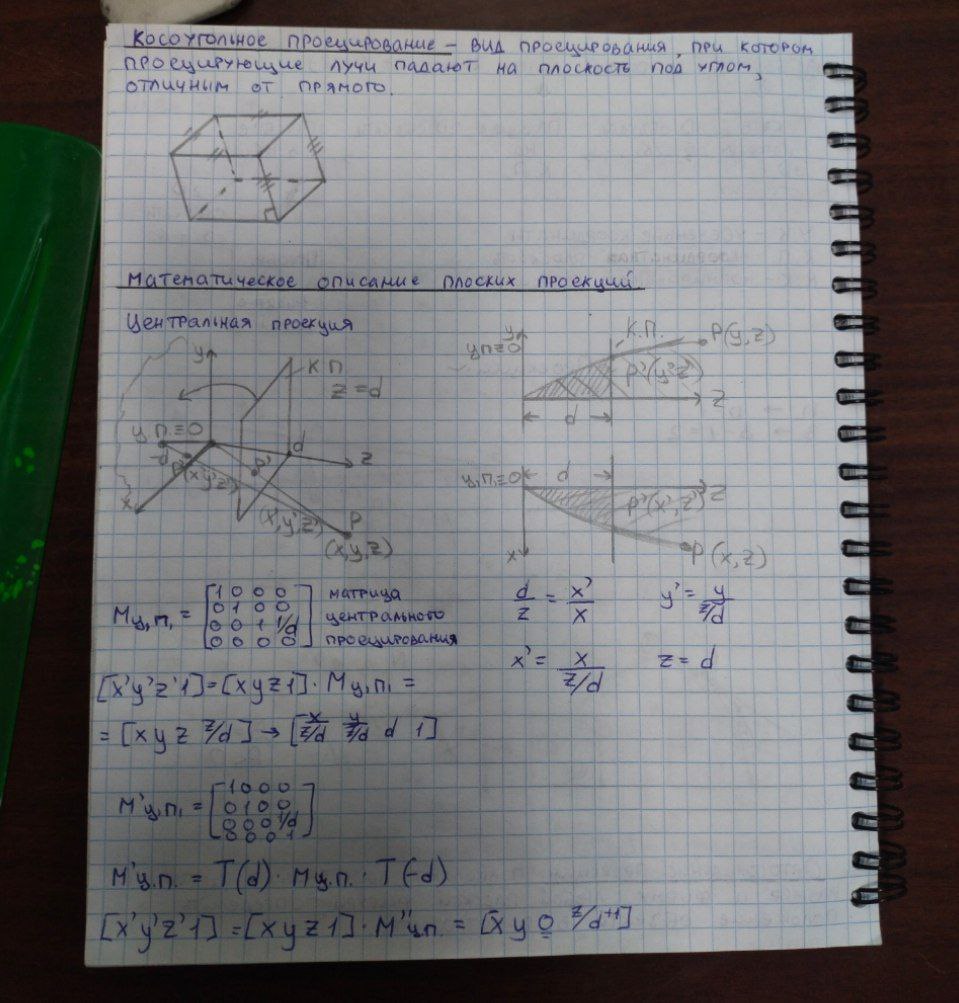 Косоугольное проецирование – вид проецирования, при котором
проецирующие лучи падают на плоскость под углом,
отличным от прямого.
Математическое описание плоских проекций.
Центральная проекция
y
КП
z = d
ц.п.≡0
-d
d
z
x
P'
(x'y'z')
(x',y',z')
P
(x,y,z)
y
ц.п.≡0
К.П.
P(y,z)
P'(y'z')
z
d
ц.п.≡0
d
z
P'(x',z')
x
P(x,z)
Mц.п. = [1 0 0 0
0 1 0 0
0 0 1 1/d
0 0 0 0]
матрица
центрального
проецирования
d/z = x'/x
y' = y/(z/d)
x' = x/(z/d)
z = d
[x'y'z'1] = [xyz1] · Mц.п. =
= [x y z z/d] → [x/(z/d) y/(z/d) d 1]
M'ц.п. = [1 0 0 0
0 1 0 0
0 0 0 1/d
0 0 0 1]
M'ц.п. = T(d) · Mц.п. · T(-d)
[x'y'z'1] = [xyz1] · M''ц.п. = [x y 0 z/d+1]